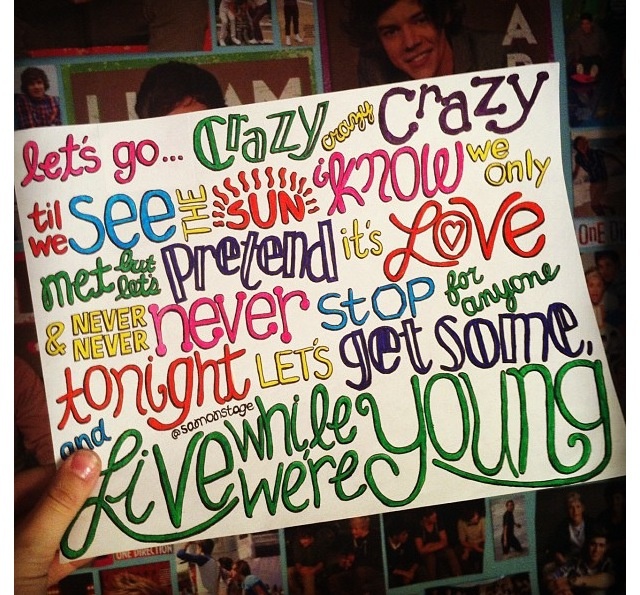 let's go... Crazy crazy Crazy
til we see THE SUN i know we only
met but let's pretend it's Love
& NEVER NEVER never stop for anyone
tonight LET'S get some,
@samonstage
and live while we're young
ONE DIRECTION